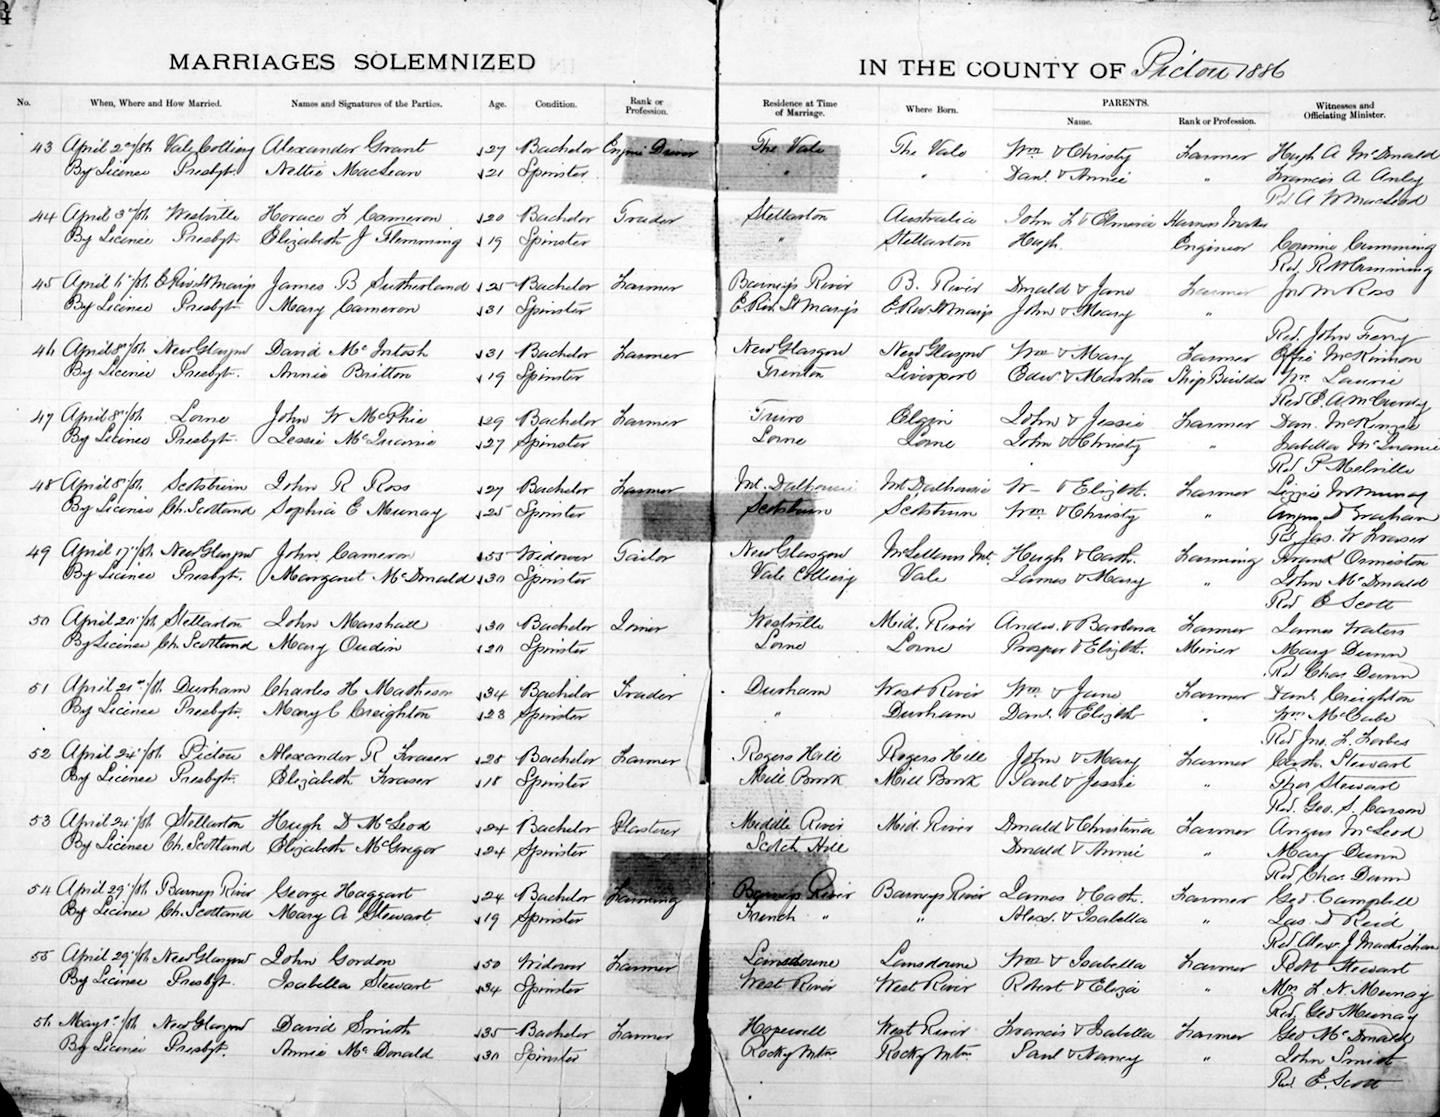 MARRIAGES SOLEMNIZED IN THE COUNTY OF Pictou 1886
No. When, Where and How Married. Names and Signatures of the Parties. Age. Condition. Rank or Profession. Residence at Time of Marriage. Where Born. PARENTS. Name. Rank or Profession. Witnesses and Officiating Minister.
43 April 2nd/86 Vale Colliery Alexander Grant 27 Bachelor Engine Driver The Vale The Vale Wm & Christy Farmer Hugh A McDonald
By Licence Presbyt. Nettie MacLean 21 Spinster " " Danl. & Annie " Francis A
Rev A W MacLeod
44 April 3rd/86 Westville Horace L Cameron 20 Bachelor Trader Stellarton Australia John L & Elmeria Harness Maker
By Licence Presbyt. Elizabeth J Flemming 19 Spinster " Stellarton Hugh Engineer Corinne Cumming
Rev. R Cumming
45 April /86 E Riv St Marys James B Sutherland 25 Bachelor Farmer Barney's River B. River Donald & Jane Farmer Jno M Ross
By Licence Presbyt. Mary Cameron 31 Spinster E. Riv. St Mary's E. Riv. St Marys John & Mary "
Rev. John
46 April 8th/86 New Glasgow David McIntosh 31 Bachelor Farmer New Glasgow New Glasgow Wm & Mary Farmer Effie McKinnon
By Licence Presbyt. Annie Britton 19 Spinster Trenton Liverpool Edw. & Martha Ship Builder Wm. Laurie
Rev E. A. McCurdy
47 April 8th/86 Lorne John W McPhie 29 Bachelor Farmer Truro Elgin John & Jessie Farmer Dan. McKenzie
By Licence Presbyt. Jessie McQuarrie 27 Spinster Lorne Lorne John & Christy " Isabella McQuarrie
Rev P Melville
48 April 8th/86 Scotsburn John R Ross 27 Bachelor Farmer Mt. Dalhousie Mt Dalhousie Wm & Elizbt. Farmer Lizzie Murray
By Licence Ch. Scotland Sophia E Murray 25 Spinster Scotsburn Scotsburn Wm & Christy " Angus D Graham
Rev. Jas. W Fraser
49 April 17th/86 New Glasgow John Cameron 55 Widower Tailor New Glasgow McLellans Mt. Hugh & Cath. Farming Frank Ormiston
By Licence Presbyt. Margaret McDonald 30 Spinster Vale Colliery Vale James & Mary " John McDonald
Rev E Scott
50 April 20th/86 Stellarton John Marshall 30 Bachelor Joiner Westville Mid. River Andw. & Barbara Farmer James Waters
By Licence Ch. Scotland Mary Oudin 20 Spinster Lorne Lorne Prosper & Elizbt. Miner Mary Dunn
Rev Chas. Dunn
51 April 21st/86 Durham Charles H Matheson 34 Bachelor Trader Durham West River Wm & Jane Farmer Danl. Creighton
By Licence Presbyt. Mary C Creighton 23 Spinster " Durham Danl. & Elizbt " Wm McCabe
Rev Jno. L. Forbes
52 April 24th/86 Pictou Alexander R Fraser 28 Bachelor Farmer Rogers Hill Rogers Hill John & Mary Farmer Cath. Stewart
By Licence Presbyt. Elizabeth Fraser 18 Spinster Mill Brook Mill Brook Paul & Jessie " Thos Stewart
Rev. Geo. S. Carson
53 April 24th/86 Stellarton Hugh D McLeod 24 Bachelor Plasterer Middle River Mid. River Donald & Christina Farmer Angus McLeod
By Licence Ch. Scotland Elizabeth McGregor 24 Spinster Scotch Hill Donald & Annie " Mary Dunn
Rev Chas. Dunn
54 April 29th/86 Barneys River George Haggart 24 Bachelor Farming Barneys River Barneys River James & Cath. Farmer Geo. Campbell
By Licence Ch. Scotland Mary A Stewart 19 Spinster French " " Alexr. & Isabella " Jas. D Reid
Rev Alex. J MacKichan
55 April 29th/86 New Glasgow John Gordon 50 Widower Farmer Lansdowne Lansdowne Wm & Isabella Farmer Robt Stewart
By Licence Presbyt. Isabella Stewart 34 Spinster West River West River Robert & Eliza Mrs L. N. Murray
Rev. Geo Murray
56 May 1st/86 New Glasgow David Smith 35 Bachelor Farmer Hopewell West River Francis & Isabella Farmer Geo McDonald
By Licence Presbyt. Annie McDonald 30 Spinster Rocky Mtn. Rocky Mtn Paul & Nancy " John Smith
Rev E. Scott